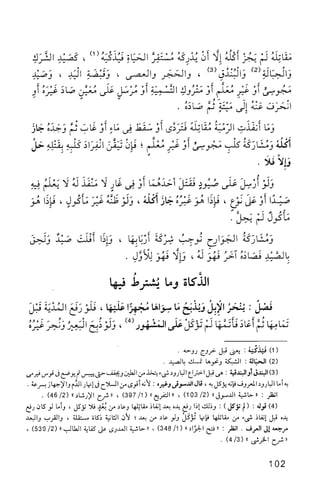 مَقَاتِلَهُ لَمْ يَجُزْ أَكْلُهُ إِلَّا أَنْ يُدْرِكَهُ مُسْتَقِرَّ الحَيَاةِ فَيُذَكِّيَهُ (1) ، كَصَيْدِ الشَّرَكِ
وَالْحِبَالَةِ (2) وَالْبُنْدُقِ (3) ، والحَجَرِ والعصى ، وَقَبْضَةِ الْيَدِ ، وَصَيْدِ
مَجُوسِيٍّ أَوْ غَيْرِ مُعَلَّمٍ أَوْ مَتْرُوكِ التَّسْمِيَةِ أَوْ مُرْسَلٍ عَلَى مُعَيَّنٍ صَادَ غَيْرَهُ أَوِ
انْحَرَفَ عَنْهُ إِلَى مَيْتَةٍ ثُمَّ صَادَهُ .
وَمَا أَنْفَذَتِ الرَّمْيَةُ مَقَاتِلَهُ فَتَرَدَّى أَوْ سَقَطَ فِي مَاءٍ أَوْ غَابَ ثُمَّ وَجَدَهُ جَازَ
أَكْلُهُ وَمُشَارَكَةُ كَلْبِ مَجُوسِيٍّ أَوْ غَيْرِ مُعَلَّمٍ ؛ فَإِنْ تَيَقَّنَ انْفِرَادَ كَلْبِهِ بِقَتْلِهِ حَلَّ
وَإِلَّا فَلَا .
وَلَوْ أُرْسِلَ عَلَى صُيُودٍ فَقَتَلَ أَحَدَهُمَا أَوْ فِي غَارٍ لَا مَنْفَذَ لَهُ لَا يَعْلَمُ فِيهِ
صَيْدًا أَوْ عَلَى نَوْعٍ ، فَإِذَا هُوَ غَيْرُهُ جَازَ أَكْلُهُ ، وَلَوْ ظَنَّهُ غَيْرَ مَأْكُولٍ ، فَإِذَا هُوَ
مَأْكُولٌ لَمْ يَحِلَّ .
وَمُشَارَكَةُ الجَوَارِحِ تُوجِبُ شِرْكَةَ أَرْبَابِهَا ، وَإِذَا أَفْلَتَ صَيْدٌ وَلَحِقَ
بِالصَّيْدِ فَصَادَهُ آخَرُ فَهُوَ لَهُ ، وَإِلَّا فَهُوَ لِلأَوَّلِ .
الذَّكاة وما يُشترطُ فيها
فَصْلٌ : يُنْحَرُ الإِبِلُ وَيُذْبَحُ مَا سِوَاهَا مُجْهِزًا عَلَيْهَا ، فَلَوْ رَفَعَ المُدْيَةَ قَبْلَ
تَمَامِهَا ثُمَّ أَعَادَ فَأَتَمَّهَا لَمْ تُؤْكَلْ عَلَى المَشْهُورِ (4) ، وَلَوْ ذُبِحَ الْبَعِيرُ وَنُحِرَ غَيْرُهُ
(1) فَيُذَكِّيَهُ : يعنى قبل خروج روحه .
(2) الحبالة : الشبكة ونحوها تمسك بالصيد .
(3) البندق أو البندقية : هى قبل اختراع البارود شىء يتخذ من الطين ويجفف حتى ييبس ثم يوضع فى قوس فيرمى
به أما البارود المعروف فإنه يؤكل به ، قال الدسوقى وغيره : لأنه أقوى من السلاح فى إنهار الدم والإجهاز بسرعة .
انظر : « حاشية الدسوقى » (103/2) ، « التفريع » (397/1) ، « شرح الإرشاد » (46/2) .
(4) قوله : ( لم تؤكل ) : وذلك إذا رفع يده بعد إنفاذ مقاتلها وعاد من بُعْدٍ فلا تؤكل ، وأما لو كان رفع
يده قبل إنفاذ شىء من مقاتلها فإنها تؤكل ولو عاد من بعد ؛ لأن الثانية ذكاة مستقلة ، والقرب والبعد
مرجعه إلى العرف . انظر : « فتح الجواد » (346/1) ، « حاشية العدوى على كفاية الطالب » (539/2) ،
« شرح الخرشى » (4/3) .
102